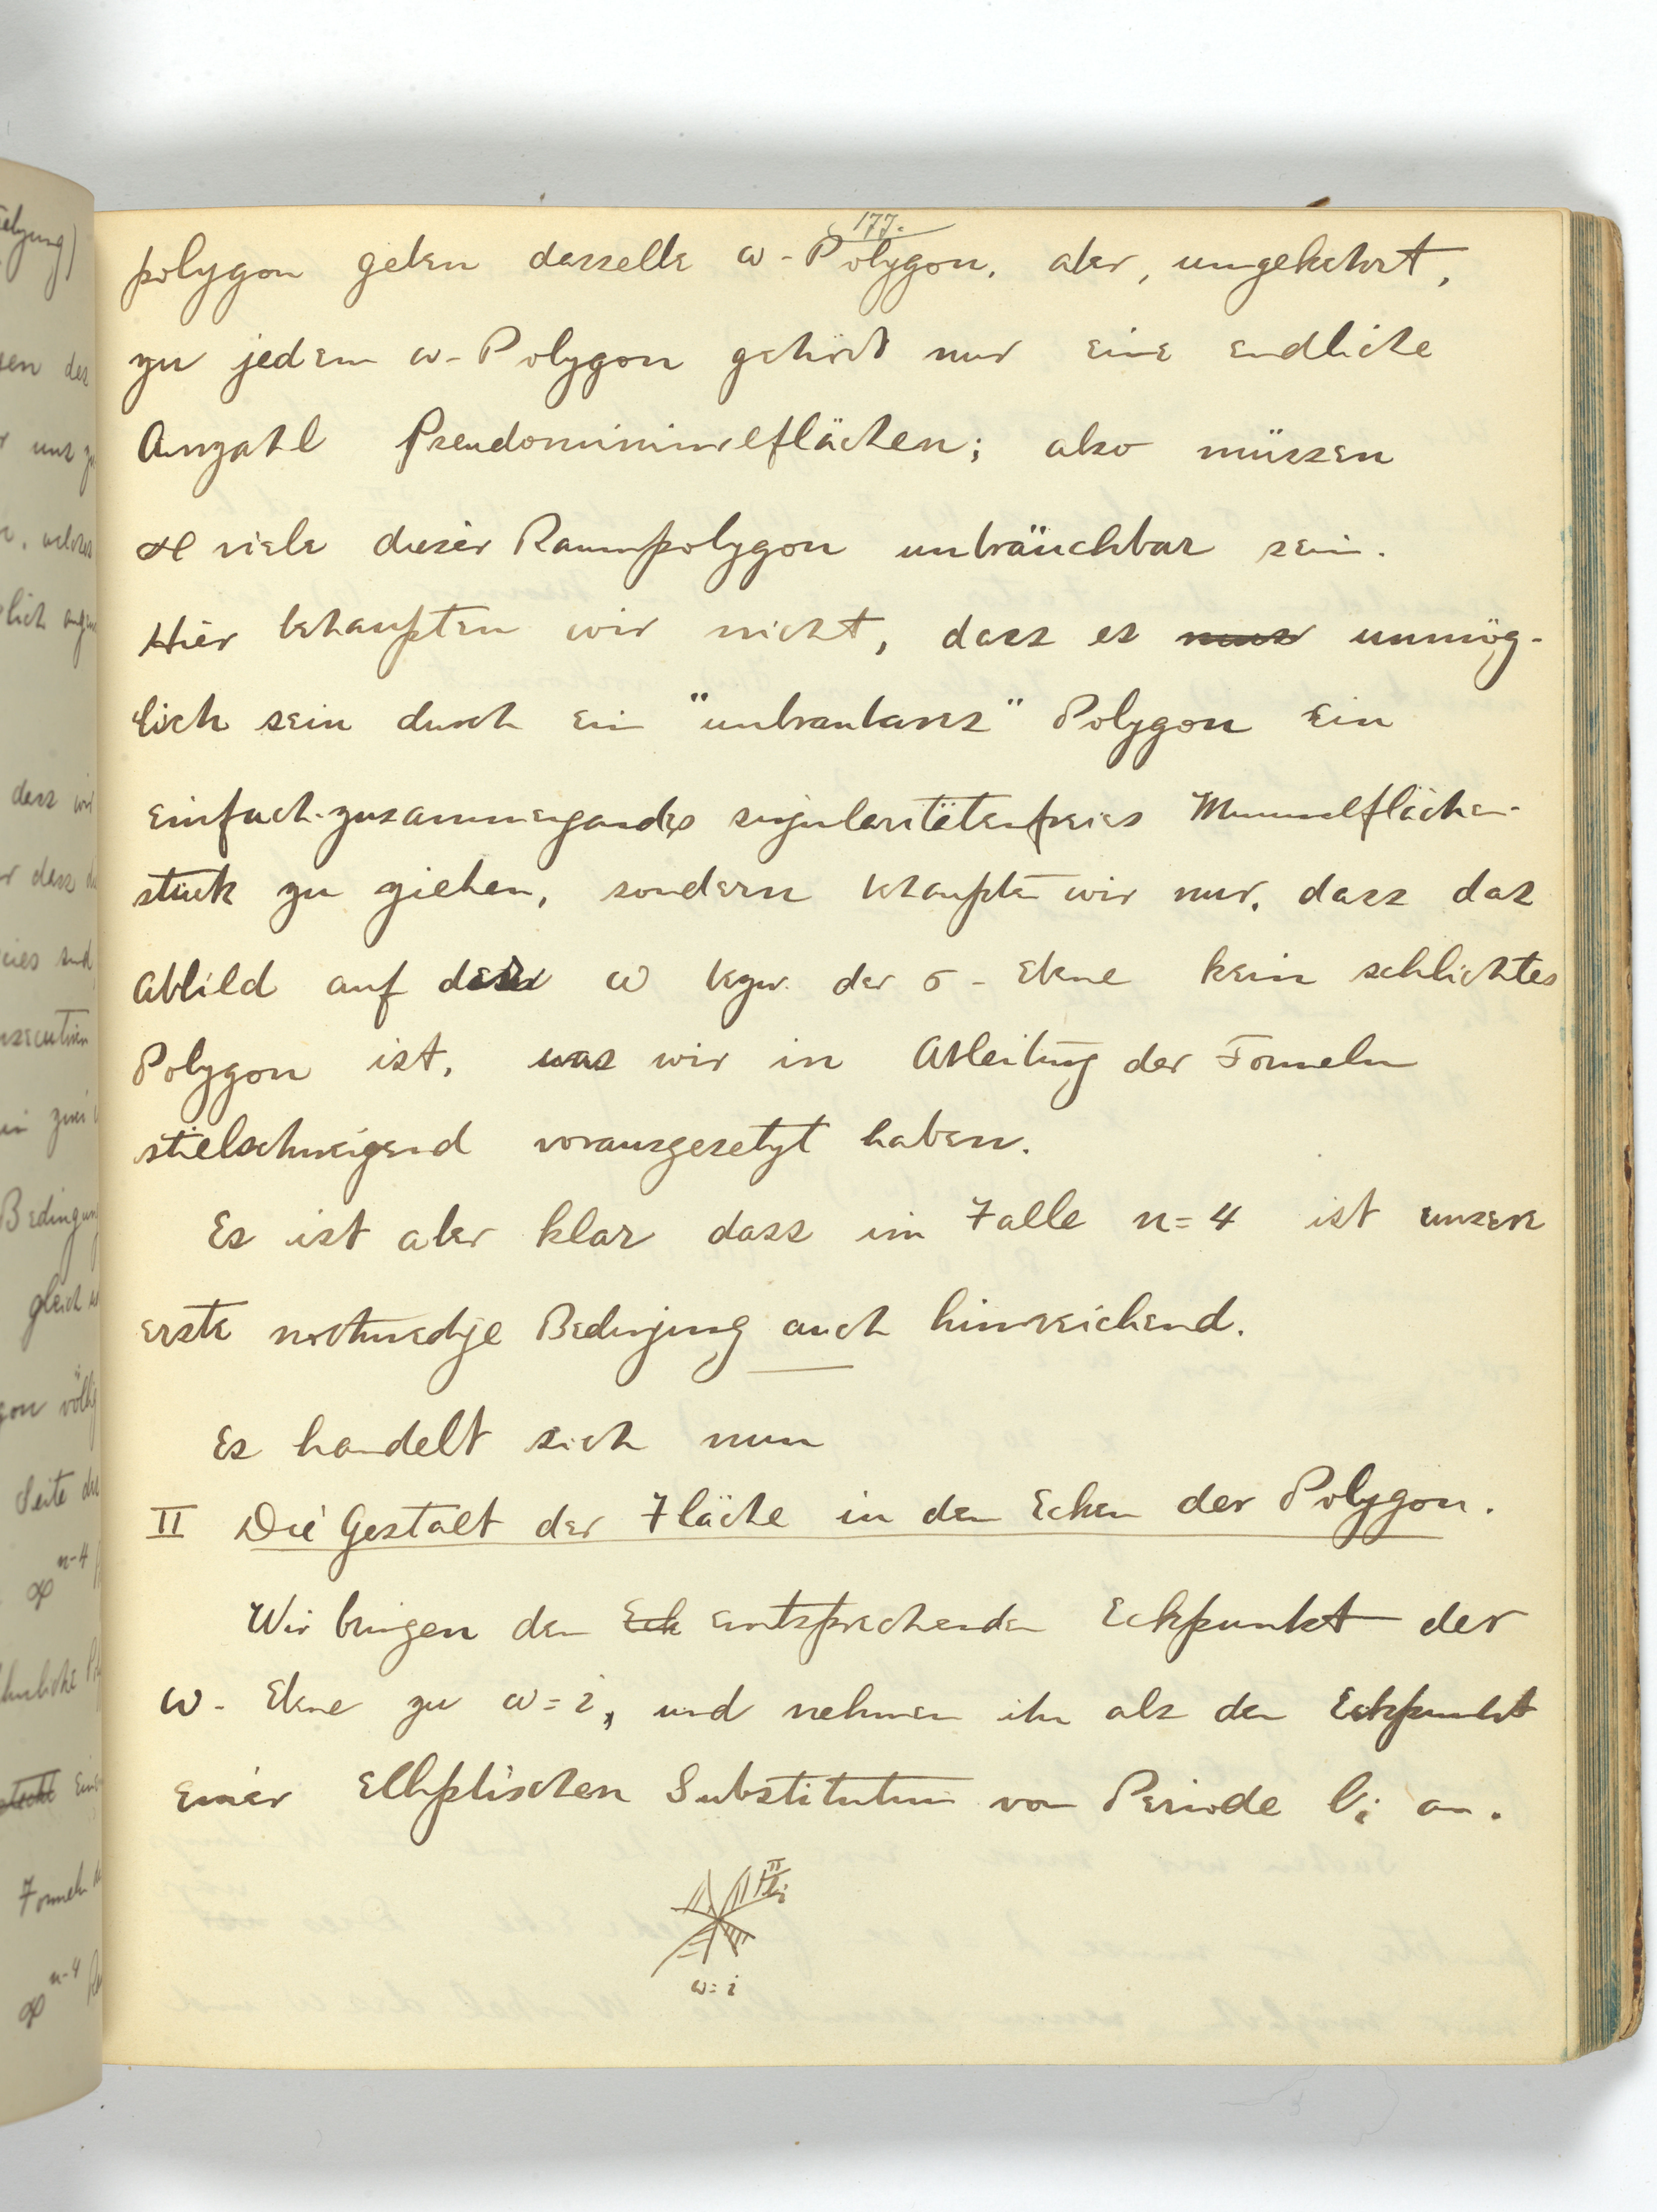 177.
polygon geben dasselbe ω-Polygon, aber, umgekehrt,
zu jedem ω-Polygon gehört nur eine endliche
Anzahl Pseudominimalflächen; also müssen
∞ viele dieser Raumpolygon unbräuchbar sein.
Hier behaupten wir nicht, dass es unmög-
lich sein durch ein "unbraubares" Polygon ein
einfach-zusammengandes singularitätenfreies Minimalflächen-
stück zu ziehen, sondern behaupten wir nur, dass das
Abbild auf der ω bezw. der σ-Ebene kein schlichtes
Polygon ist, was wir in Ableitung der Formeln
stielschweigend vorausgesetzt haben.
Es ist aber klar dass im Falle n=4 ist unsere
erste nothwedige Bedingung auch hinreichend.
Es handelt sich nun
II Die Gestalt der Fläche in den Ecken der Polygon.
Wir bringen den Eck entsprechenden Eckpunkt der
ω-Ebene zu ω=i, und nehmen ihn als den Eckpunkt
einer elliptischen Substitution von Periode li an.
π/li
ω=i
gleich
Seite
n-4
∞
Formeln
n-4
∞